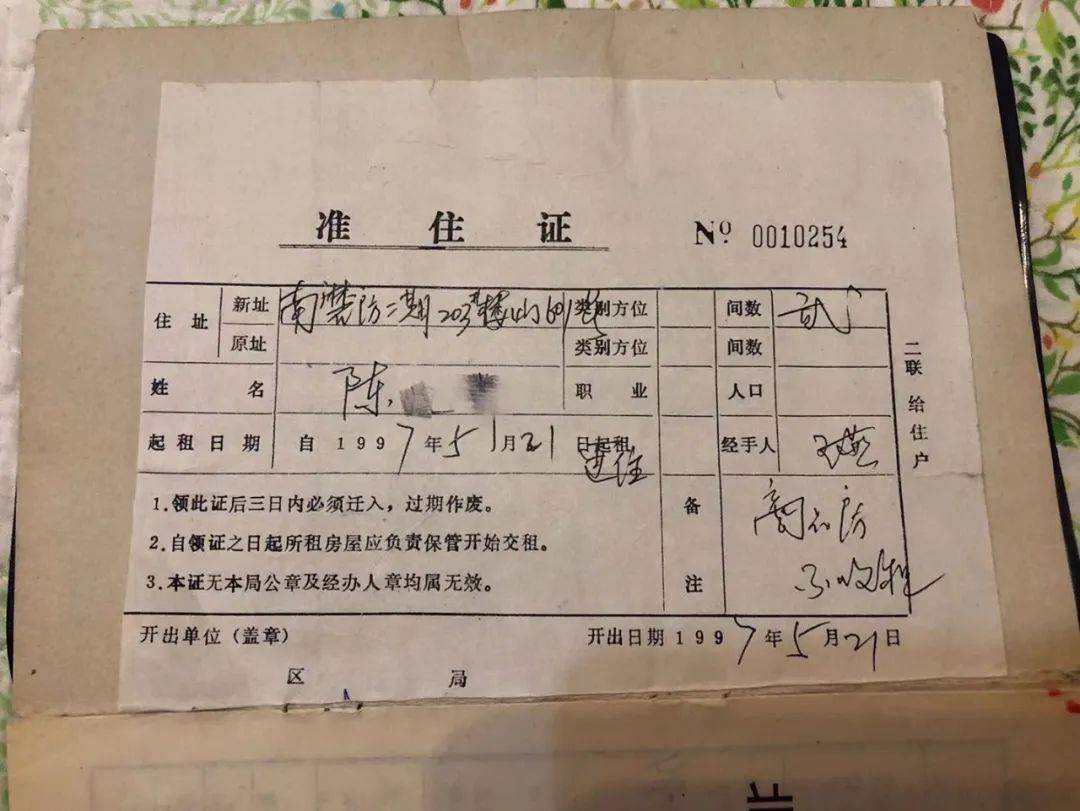 准住证 № 0010254
住址 新址 南磨房二期203#楼4门601号 类别方位 间数 贰
原址 类别方位 间数
姓名 陈 职业 人口
起租日期 自1997年5月21日起租 进住 经手人
1.领此证后三日内必须迁入，过期作废。
2.自领证之日起所租房屋应负责保管开始交租。
3.本证无本局公章及经办人章均属无效。
备注 商品房
不收租
开出单位(盖章) 开出日期1997年5月21日
区 局
二联给住户